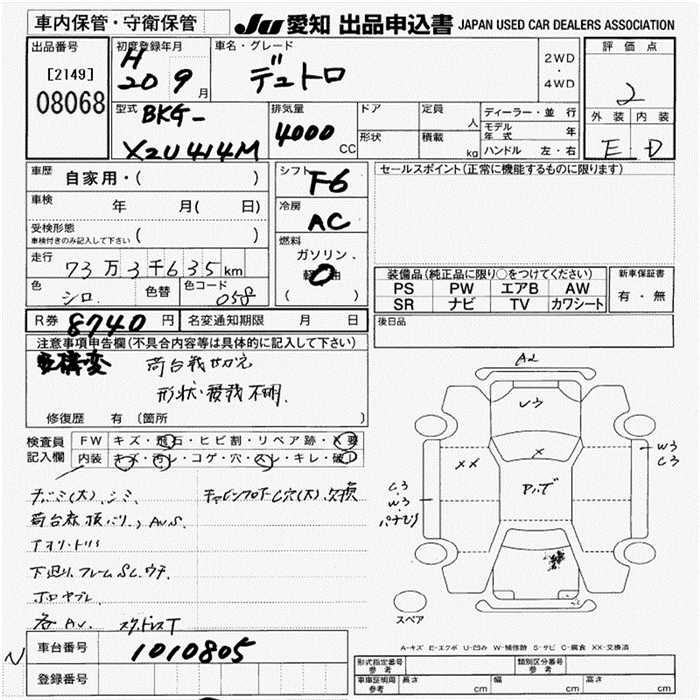 車内保管・守衛保管
JU 愛知 出品申込書 JAPAN USED CAR DEALERS ASSOCIATION
出品番号
[2149]
08068
初度登録年月
H
20 9月
車名・グレード
デュトロ
2WD
・
4WD
評価点
2
外装 内装
E D
型式
BKG-
XZU414M
排気量
4000
CC
ドア
形状
定員
人
積載
kg
ディーラー・並行
モデル年式 年
ハンドル 左・右
車歴
自家用・( )
車検
年 月( 日)
受検形態
車検付きのみ記入して下さい ( )
走行
73万3千635km
色
シロ
色替
色コード
058
シフト
F6
冷房
AC
燃料
ガソリン・
軽油
( )
セールスポイント(正常に機能するものに限ります)
装備品(純正品に限り○をつけてください)
PS PW エアB AW
SR ナビ TV カワシート
新車保証書
有・無
R券 8740 円
名変通知期限 月 日
後日品
注意事項申告欄(不具合内容等は具体的に記入して下さい)
構変 荷台載せかえ
形状・積載不明.
修復歴 有 (箇所 )
検査員
記入欄
FW キズ・飛石・ヒビ割・リペア跡・X要
内装 キズ・汚レ・コゲ・穴・スレ・キレ・破レ
シミ
荷台
AU.S.
下廻り フレームSC.ウチ
ホロヤブレ
各AU. スタッドレスT
N
車台番号
1010805
登録番号
A2
U3
X
XX
W3
C3
C.3
W.3
スペア
A-キズ E-エクボ U-凹み W-補修跡 S-サビ C-腐食 XX-交換済
形式指定番号
参考
類別区分番号
参考
車庫証明用
参考
長さ cm
幅 cm
高さ cm